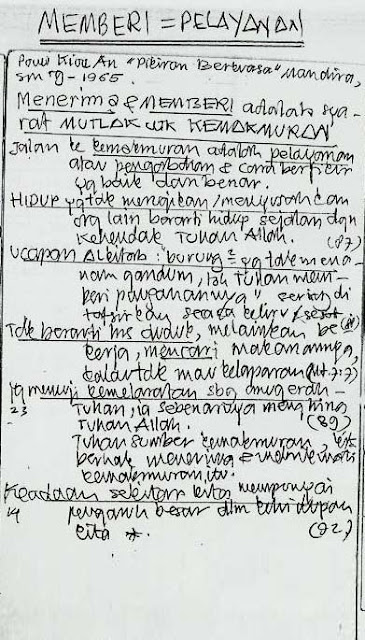 MEMBERI = PELAYANAN
"Pikiran Berkuasa" Mandira,
Smg - 1965.
Menerima & MEMBERI adalah sya-
rat MUTLAK utk KEMAKMURAN
Jalan ke kemakmuran adalah pelayanan
atau pengabdian & cara berpikir
yg baik dan benar.
HIDUP yg tak merugikan/menyusahkan
org lain berarti hidup sejalan dgn
Kehendak Tuhan Allah. (87)
Ucapan Alkitab: "burung² yg tak mena-
nam gandum, toh Tuhan mem-
beri makanannya" sering di
tafsirkan secara keliru
Tdk berarti hrs duduk, melainkan be
kerja, mencari makanannya,
kalau tak mau kelaparan (Mt. 7:7)
Yg memuji kemelaratan sbg anugerah
23 Tuhan, ia sebenarnya menghina
Tuhan Allah. (89)
Tuhan sumber kemakmuran, kita
berhak menerima & menikmati
kemakmuran itu.
Keadaan sekitar kita mempunyai
14 pengaruh besar dlm kehidupan
kita *. (92)